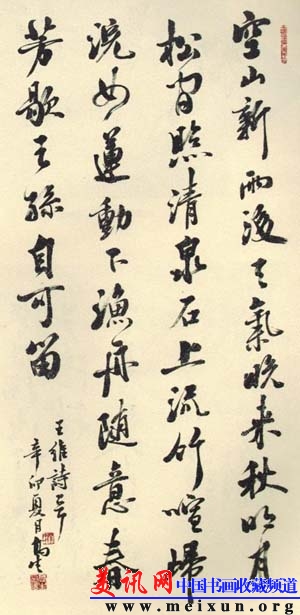 空山新雨後天氣晚来秋明月
松间照清泉石上流竹喧歸
浣女蓮動下漁舟随意春
芳歇王孫自可留
王維詩一首
辛卯夏月
美讯网
中国书画收藏频道
www.meixun.org